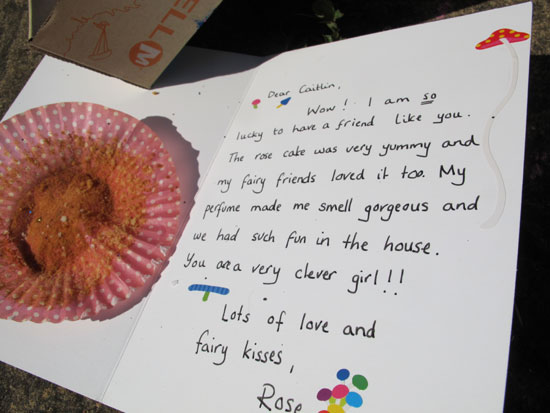 ELL
M
Dear Caitlin,
Wow! I am so
lucky to have a friend like you.
The rose cake was very yummy and
my fairy friends loved it too. My
perfume made me smell gorgeous and
we had such fun in the house.
You are a very clever girl!!
Lots of love and
fairy kisses,
Rose